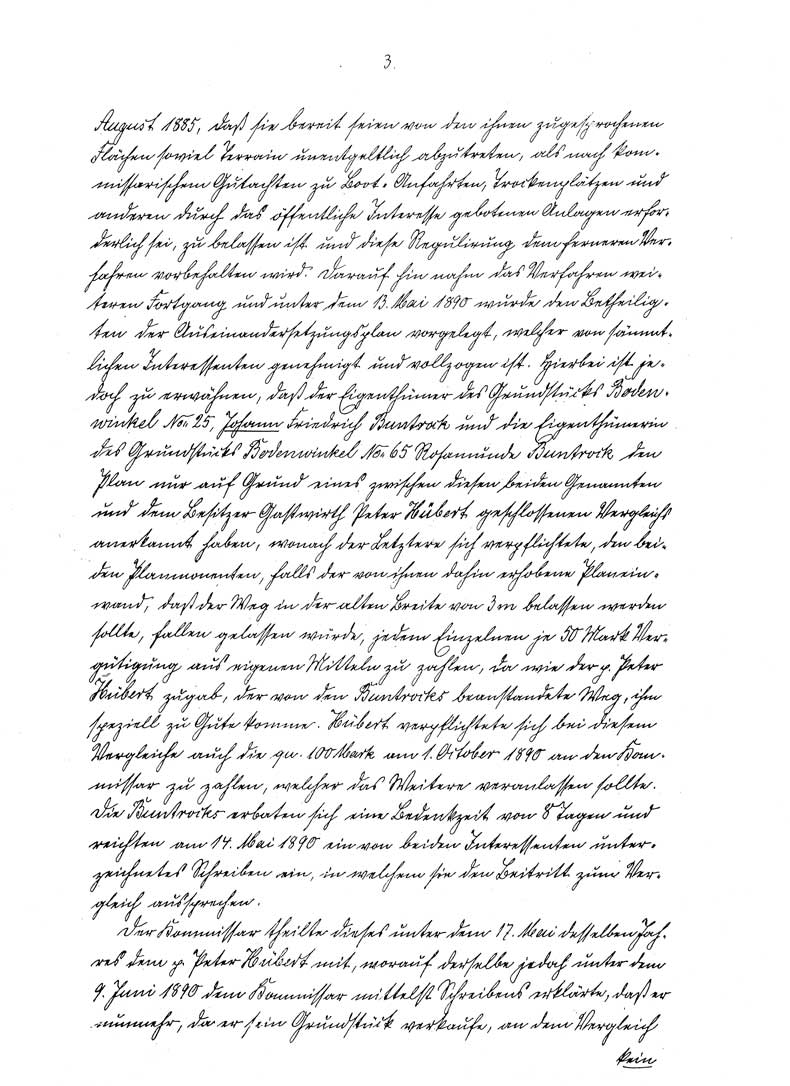 3.
August 1885, daß sie bereit seien von den ihnen zugesprochenen
Flächen soviel Terrain unentgeltlich abzutreten, als nach kom-
missarischem Gutachten zu Boot-Anfahrten, Trockenplätzen und
anderen durch das öffentliche Interesse gebotenen Anlagen erfor-
derlich sei, zu belassen ist und diese Regulirung dem ferneren Ver-
fahren vorbehalten wird. Darauf hin nahm das Verfahren wei-
teren Fortgang und unter dem 13. Mai 1890 wurde den Betheilig-
ten der Auseinandersetzungsplan vorgelegt, welcher von sämmt-
lichen Interessenten genehmigt und vollzogen ist. Hierbei ist je-
doch zu erwähnen, daß der Eigenthümer des Grundstücks Boden-
winkel No. 25, Johann Friedrich Buntrock und die Eigenthümerin
des Grundstücks Bodenwinkel No. 65 Rosamunde Buntrock den
Plan nur auf Grund eines zwischen diesen beiden Genannten
und dem Besitzer Gastwirth Peter Hübert geschlossenen Vergleichs
anerkannt haben, wonach der Letztere sich verpflichtete, den bei-
den Planmonenten, falls der von ihnen dahin erhobene Planein-
wand, daß der Weg in der alten Breite von 3 m belassen werden
sollte, fallen gelassen würde, jedem Einzelnen je 50 Mark Ver-
gütigung aus eigenen Mitteln zu zahlen, da wie der p. Peter
Hübert zugab, der von den Buntrocks beanstandete Weg, ihm
speziell zu Gute komme. Hübert verpflichtete sich bei diesem
Vergleiche auch die qu. 100 Mark am 1. October 1890 an den Kom-
missar zu zahlen, welcher das Weitere veranlassen sollte.
Die Buntrocks erbaten sich eine Bedenkzeit von 8 Tagen und
reichten am 14. Mai 1890 ein von beiden Interessenten unter-
zeichnetes Schreiben ein, in welchem sie den Beitritt zum Ver-
gleich aussprechen.
Der Kommissar theilte dieses unter dem 17. Mai desselben Jah-
res dem p. Peter Hübert mit, worauf derselbe jedoch unter dem
9. Juni 1890 dem Kommissar mittelst Schreibens erklärte, daß er
nunmehr, da er sein Grundstück verkaufe, an dem Vergleich
kein